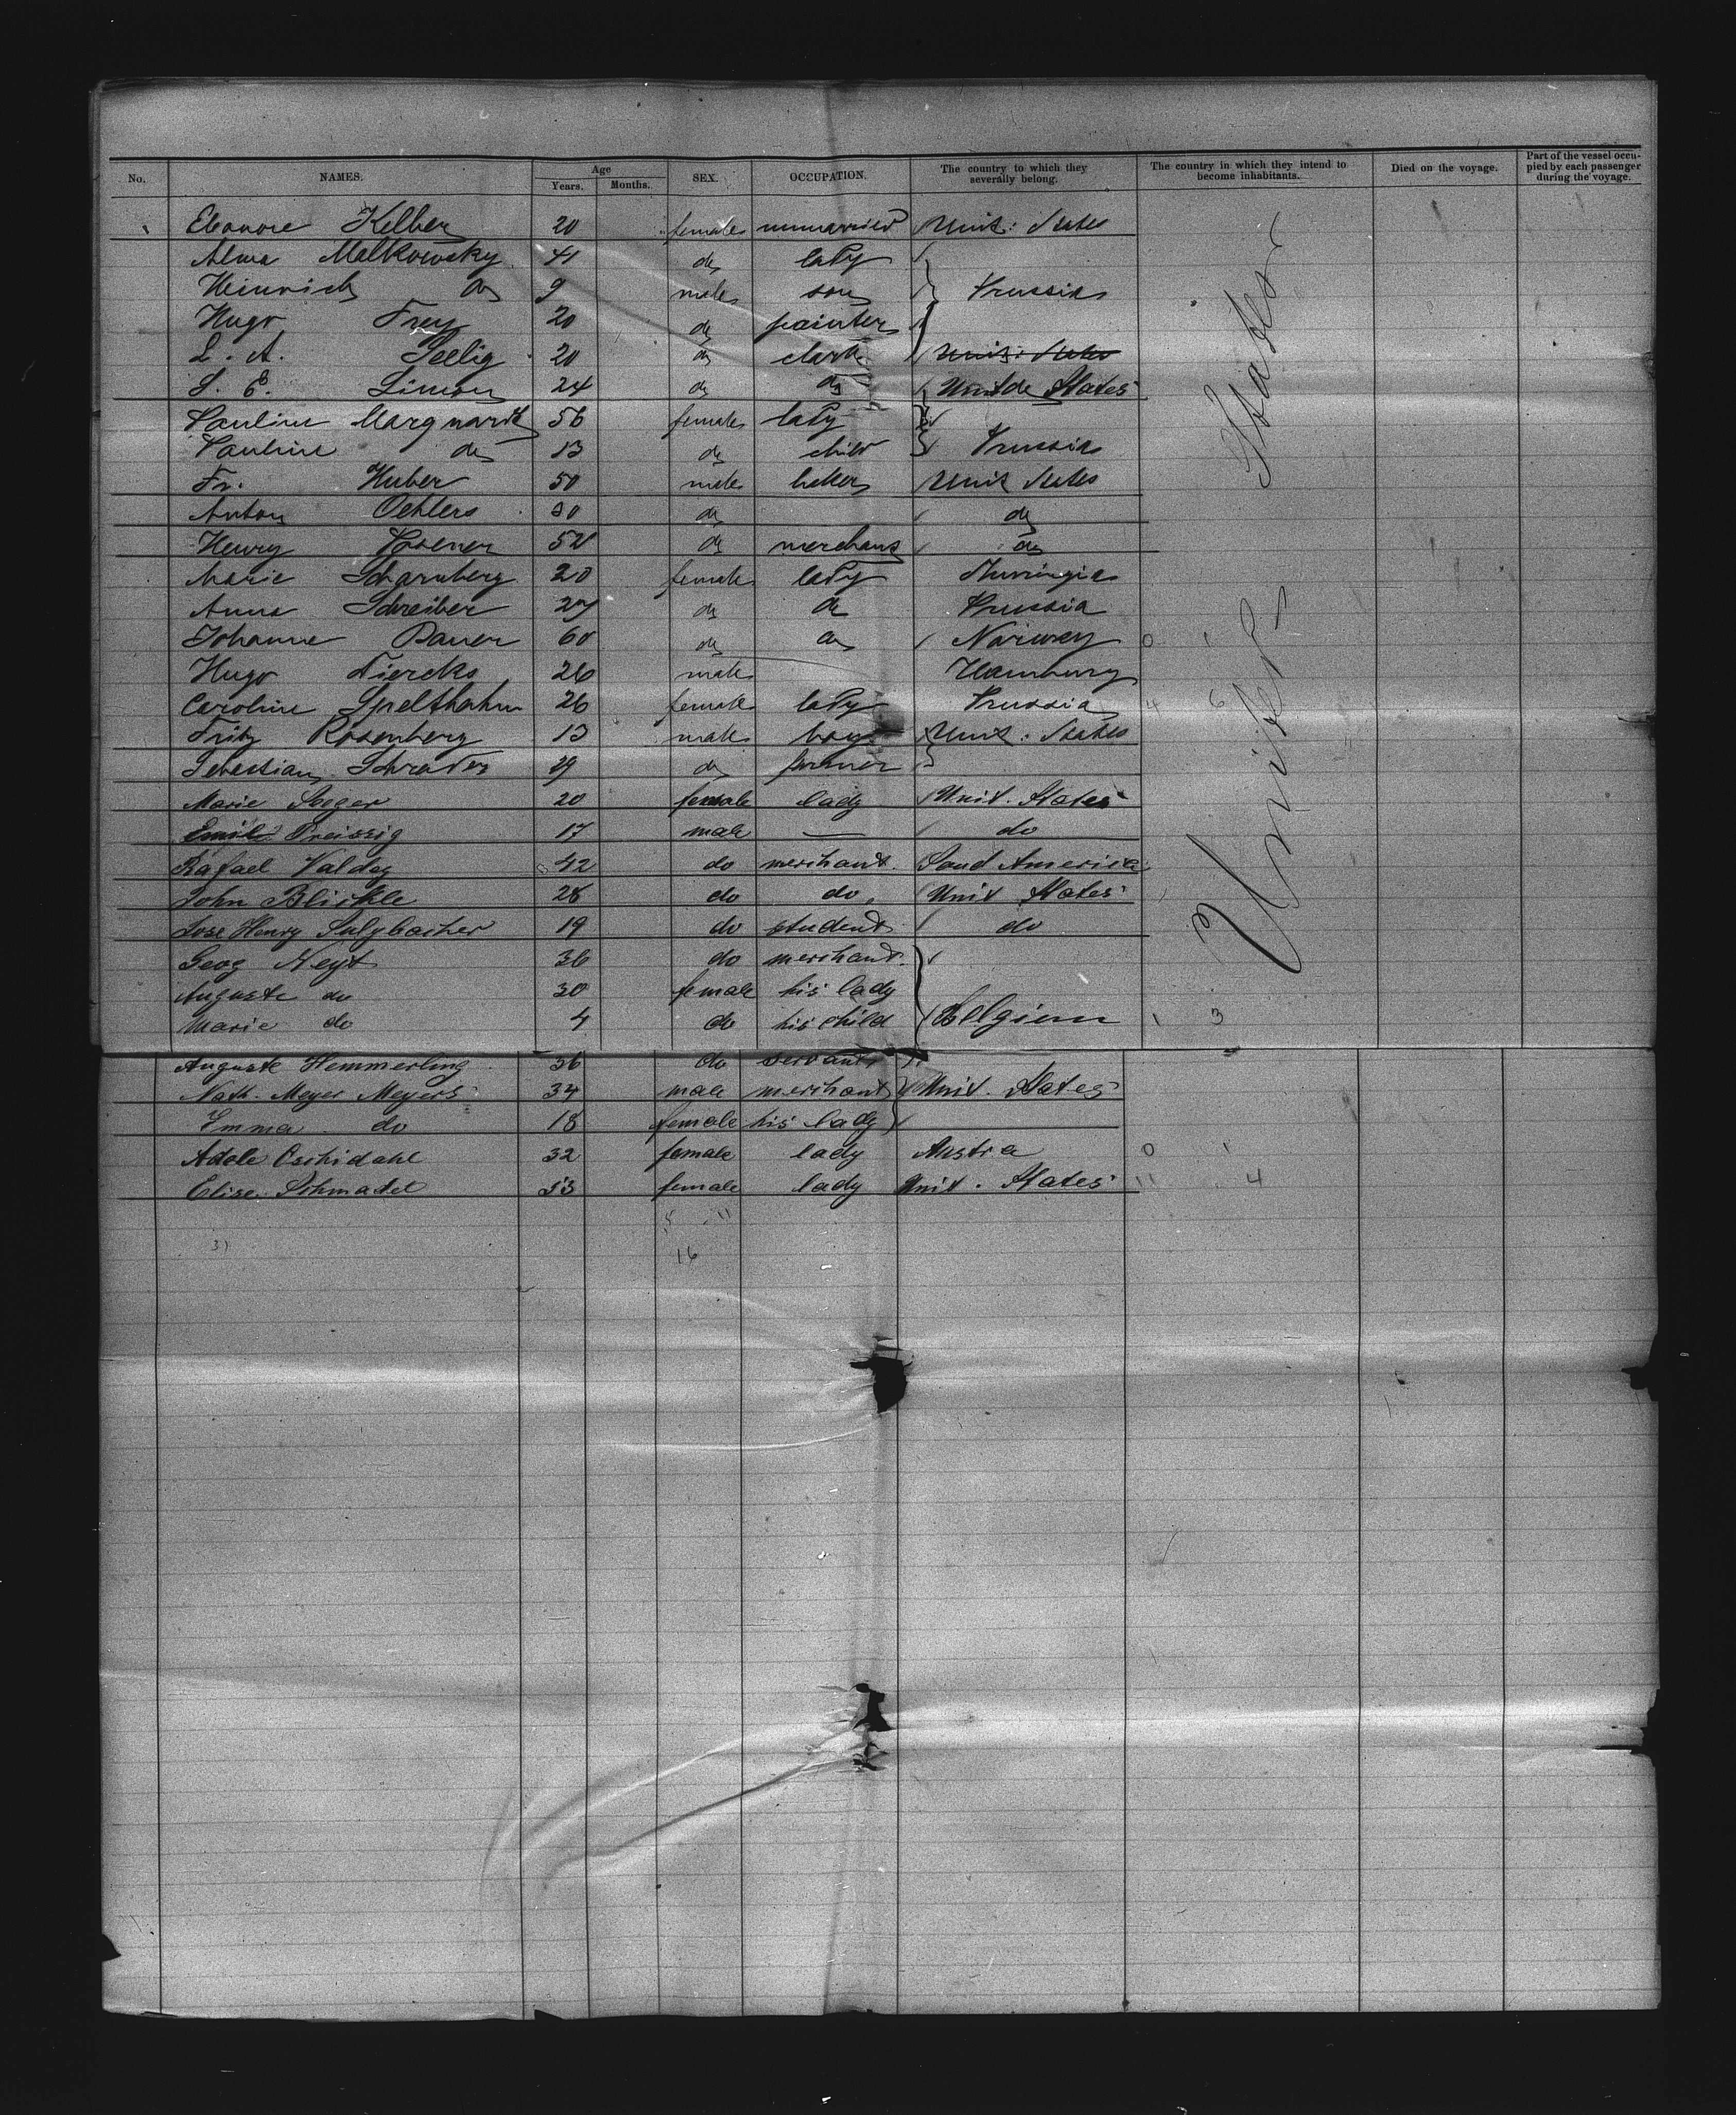 No. NAMES. Age Years. Months. SEX. OCCUPATION. The country to which they severally belong. The country in which they intend to become inhabitants. Died on the voyage. Part of the vessel occupied by each passenger during the voyage.
Eleonore Kelber 20 female unmarried Unit: States
Alma Malkowsky 41 do lady
Heinrich do 9 male son Prussia
Hugo Frey 20 do painter
L. A. Seelig 20 do clark Unit: States
S. E. Simon 24 do do United States
Pauline Marquardt 56 female lady
Pauline do 13 do child Prussia
Fr. Huber 50 male baker Unit States
Anton Oehlers 30 do do
Henry 52 do merchant do
Marie Scharnberg 20 female lady Thuringia
Anna Schreiber 27 do do Prussia
Johanne Bauer 60 do do Norwey 0 1
Hugo Diercks 26 male Hamburg
Caroline Spelthahn 26 female lady Prussia 4 6
Fritz Rosenberg 13 male boy Unit: States
Sebastian Schrader 29 do farmer
Marie Seeger 20 female lady Unit. States
Emil Preissig 17 male — do
Rafael Valdez 42 do merchant. Soud America
John Blickle 28 do do. Unit States
Jose Henry Sulzbacher 19 do student do
Geog Neyt 36 do merchant.
Auguste do 30 female his lady
Marie do 4 do his child Belgium 1 3
United States
Auguste Hemmerling 36 do servant
Nath. Meyer Meyers 34 male merchant Unit. States
Emma do 18 female his lady
Adele 32 female lady Austria 0 1
Elise Schmadel 53 female lady Unit. States 11 4
5 11
31 16